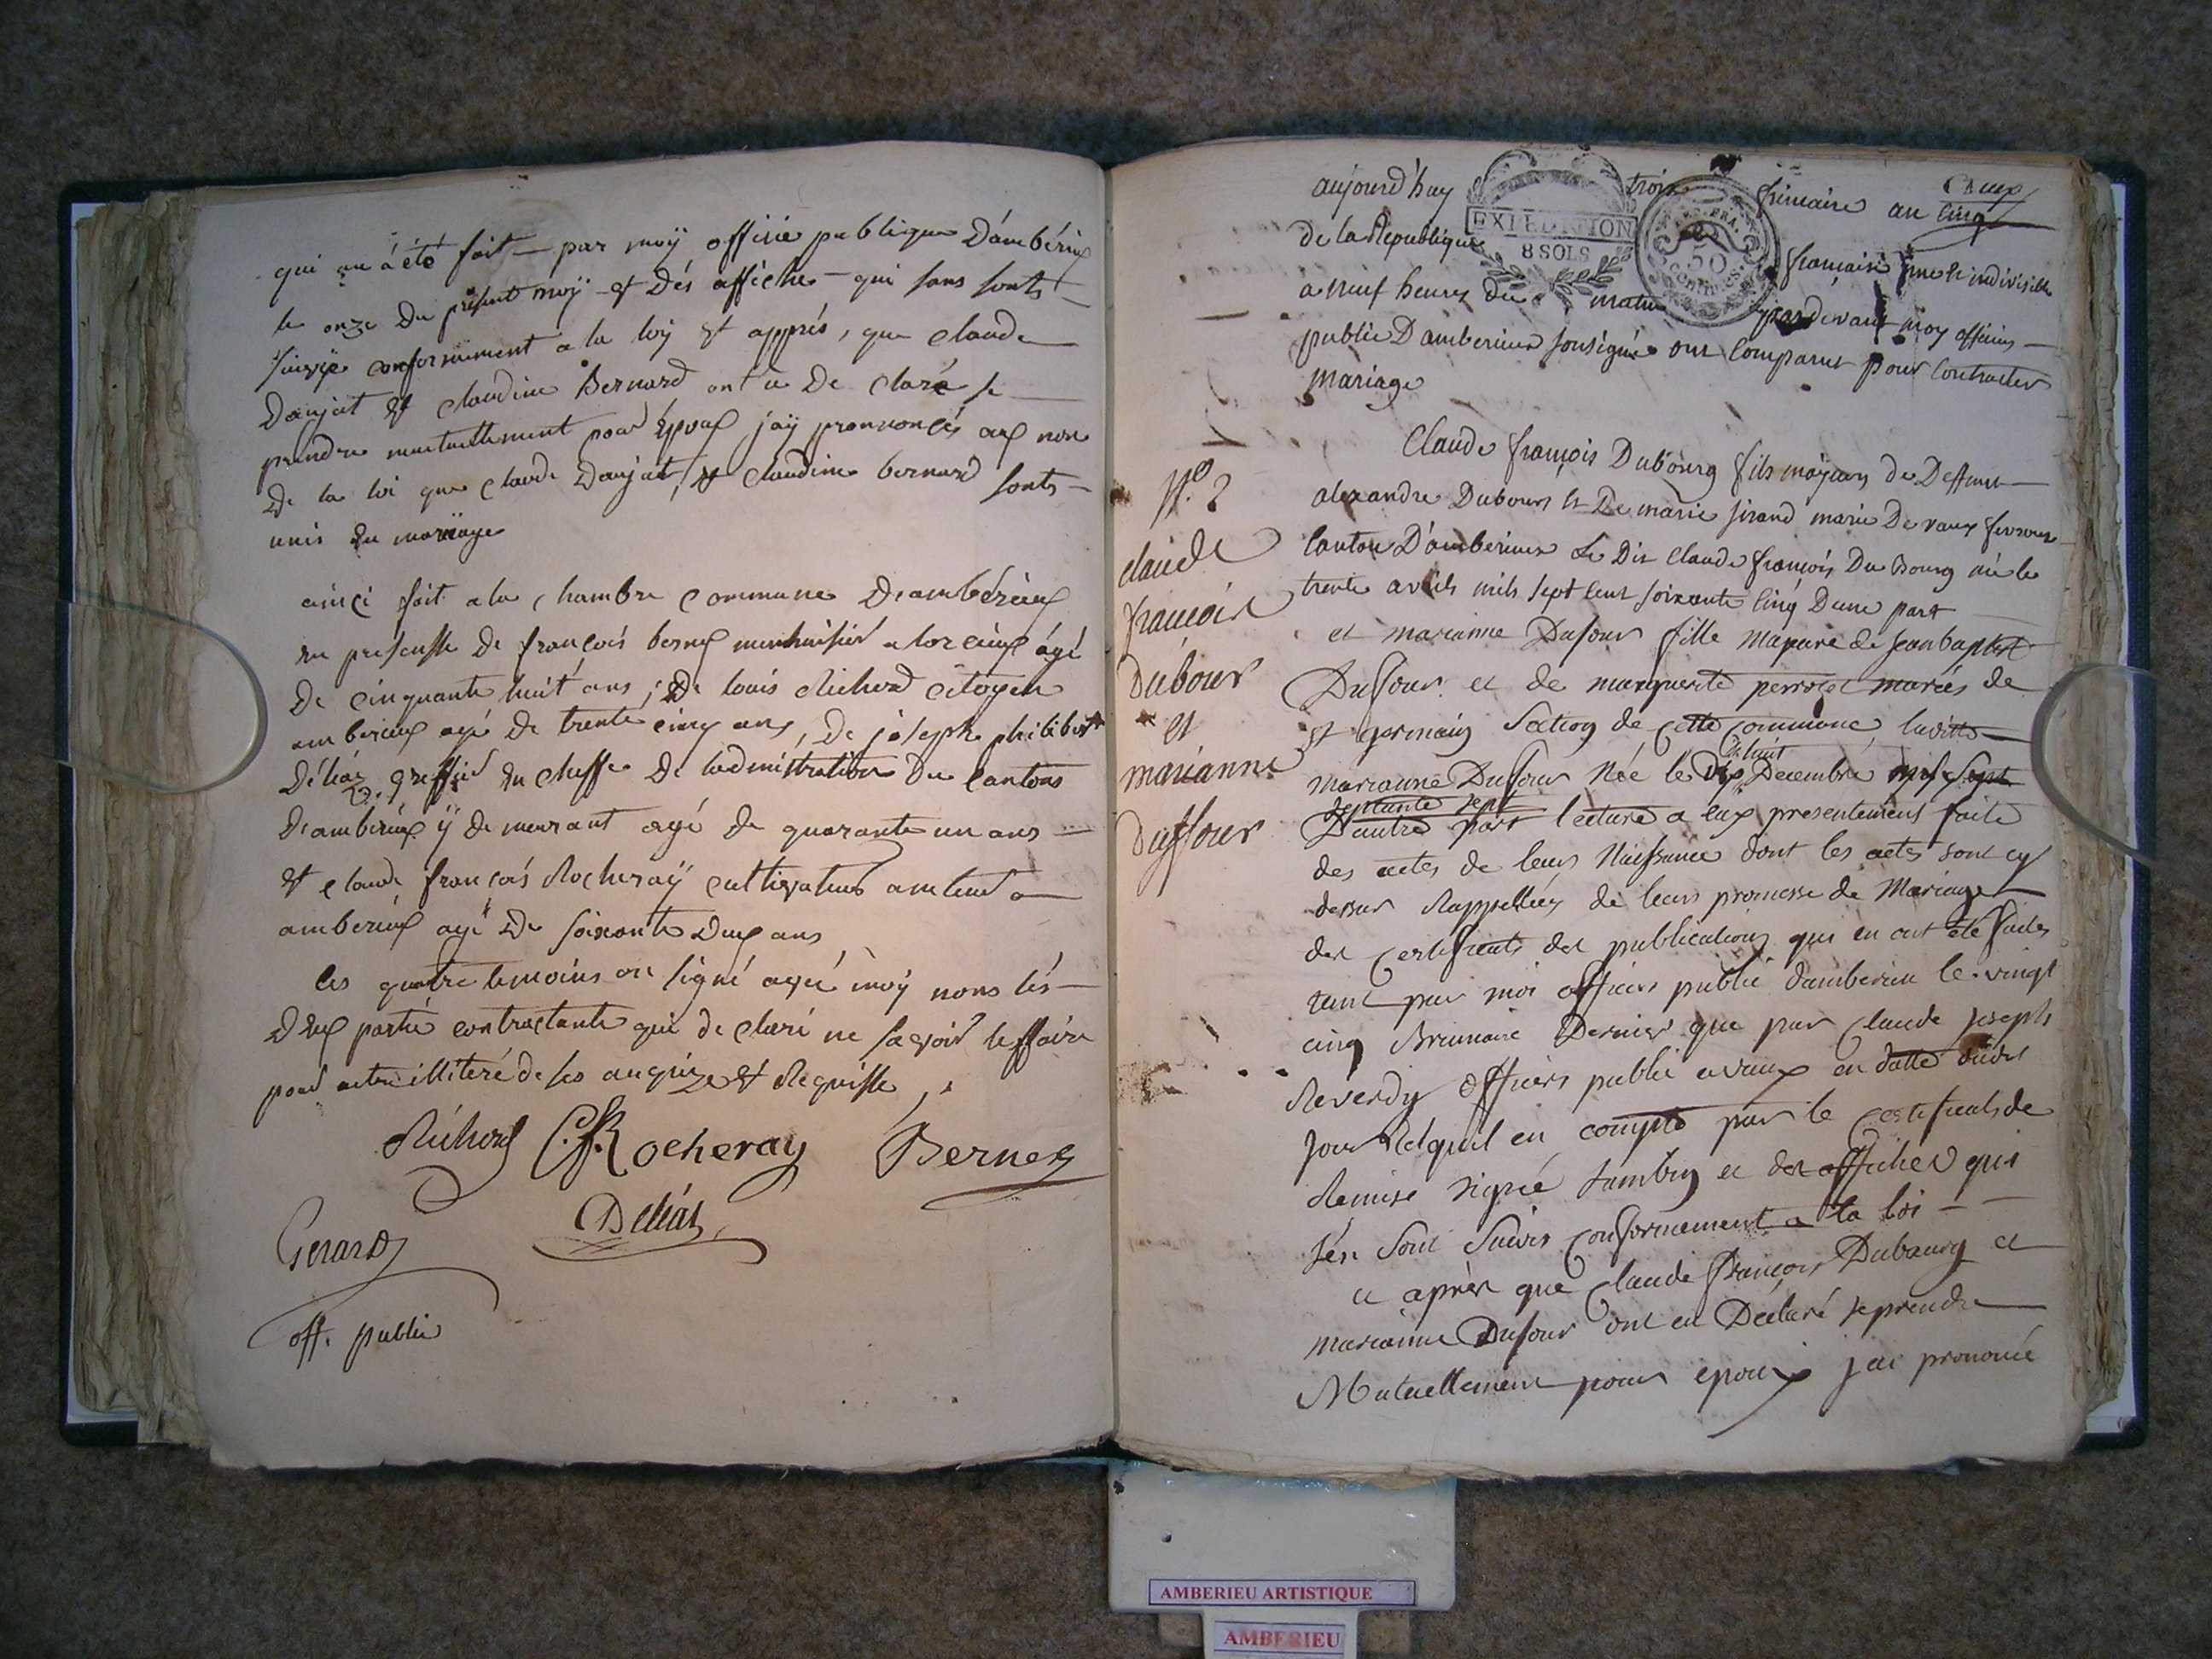 qui en a été fait - par moÿ officié publique D'ambérieux
le onze du présent moÿ et dés affiche - qui sans sonts
suivÿe conformément a la loÿ et apprés, que claude
Danjat et claudine Bernard ont u De claré se
prendre mutuellement pour Époux jaÿ prononcés aux non
De la loi que claude Danjat, et claudine bernard sonts
unis en mariage
ainci fait a la chambre commune D'ambérieux
en presensse de françois berney
De cinquante huit ans, De louis Richerd citoyen
amberieux agé de trente cinq ans, De joseph philibert
Déliaz greffié en cheffe De ladministration Du Cantons
D'ambérieux ÿ demeurant agé de quarante un ans
et claude françois Rocheraÿ cultivateur
amberieux agé De soixante Deux ans
les quatre temoins on signé avec moÿ nons lés
Deux partie contractante qui de claré ne savoir le ffaire
pour aitre illiteré de ses anquize et Requisse
Richerd C.f.Rocheray Berney
Deliáz
Gerard
off. public
aujourd'huy trois frimaire an cinq
EXPEDITION
8 SOLS
50
de la Republique française une et indivisible
a neuf heures du matin pardevant moy officier
public D'amberieux sousigné ont comparut pour contracter
Mariage
N.º 2
claude
françois
Dubour
et
marianne
Duffour
Claude françois Dubourg fils majeur de Deffunt
alexandre Dubourg et De marie sirand marié De vaux fevroux
Canton D'amberieux Le Dit Claude françois Du Bourg né le
trente avrils mils sept cent soixante cinq D'une part
et marianne Dufour fille Majeure de Jean baptiste
Duffour et de marguerite perrotet mariés de
St germain Section de cette commune, laditte
dix huit
marianne Duffour Née le Decembre mil sept
septante sept
D'autre part lecture a eux presentement faite
des actes de leurs Naissance dont les actes sont cy
dessus Rappellées de leurs promesse de Mariage
des certificats des publications qui en ont été faites
tant par moi officier public d'amberieu le vingt
cinq Brumaire Dernier que par Claude Joseph
Reverdy officiers public a vaux en datte dudit
jour Relquil en compte par le certificats de
Remise signé Jambry et des affiches qui
s'en sont suivis conformement a la loi
et après que Claude François Dubourg et
marianne Dufour ont eu Déclaré se prendre
Mutuellement pour epoux j'ai prononcé
AMBERIEU ARTISTIQUE
AMBERIEU